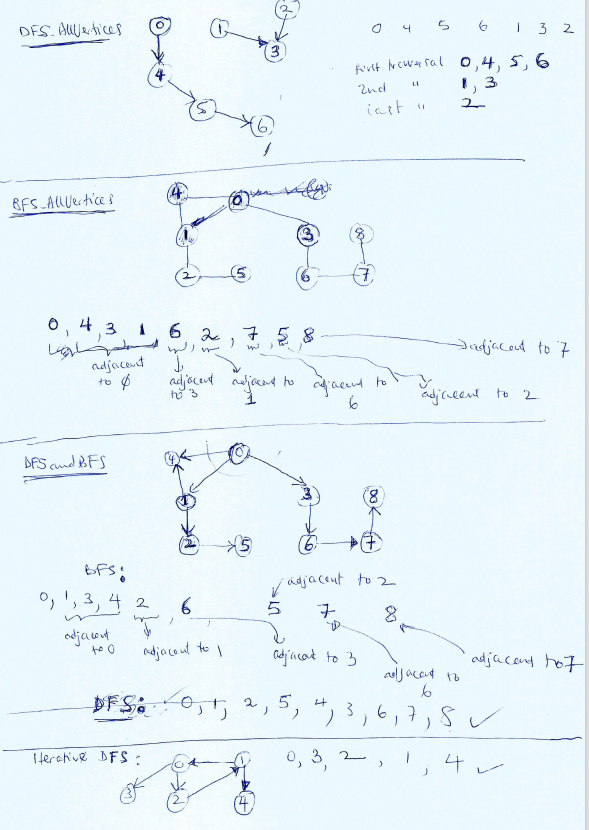 DFS_AllVertices
0 1 2
3
4
5
6
0 4 5 6 1 3 2
first traversal 0, 4, 5, 6
2nd " 1, 3
last " 2
BFS_AllVertices
4 0
1 3 8
2 5 6 7
0, 4, 3, 1 6, 2, 7, 5, 8
adjacent to 7
adjacent to 0
adjacent to 3
adjacent to 1
adjacent to 6
adjacent to 2
DFS and BFS
4 0
1 3 8
2 5 6 7
BFS:
adjacent to 2
0, 1, 3, 4 2, 6 5 7 8
adjacent to 0
adjacent to 1
adjacent to 3
adjacent to 6
adjacent to 7
DFS: 0, 1, 2, 5, 4, 3, 6, 7, 8 ✓
Iterative DFS: 0 1
3 2 4
0, 3, 2, 1, 4 ✓